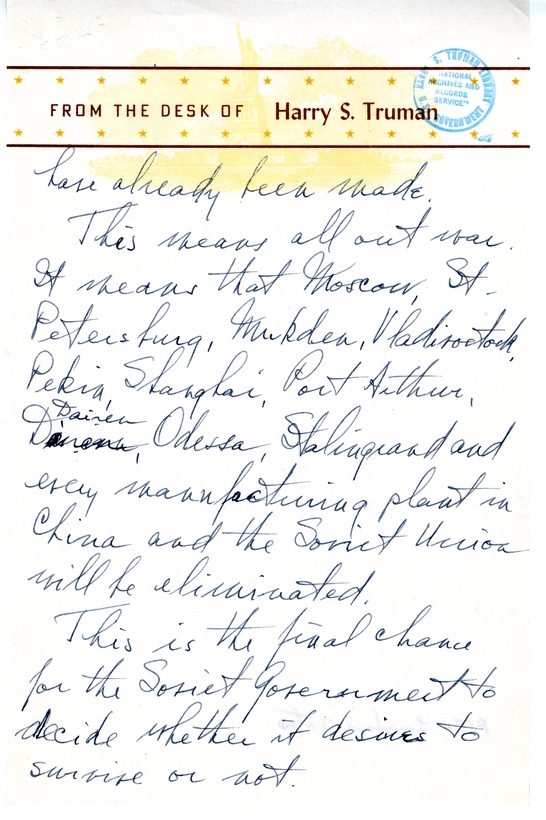 FROM THE DESK OF Harry S. Truman
HARRY S. TRUMAN LIBRARY
NATIONAL
ARCHIVES AND
RECORDS
SERVICE
U.S. GOVERNMENT
have already been made.
This means all out war.
It means that Moscow, St-
Petersburg, Mukden, Vladivostock,
Pekin, Shanghai, Port Arthur,
Dairen
, Odessa, Stalingrand and
every manufacturing plant in
China and the Soviet Union
will be eliminated.
This is the final chance
for the Soviet Government to
decide whether it desires to
survive or not.